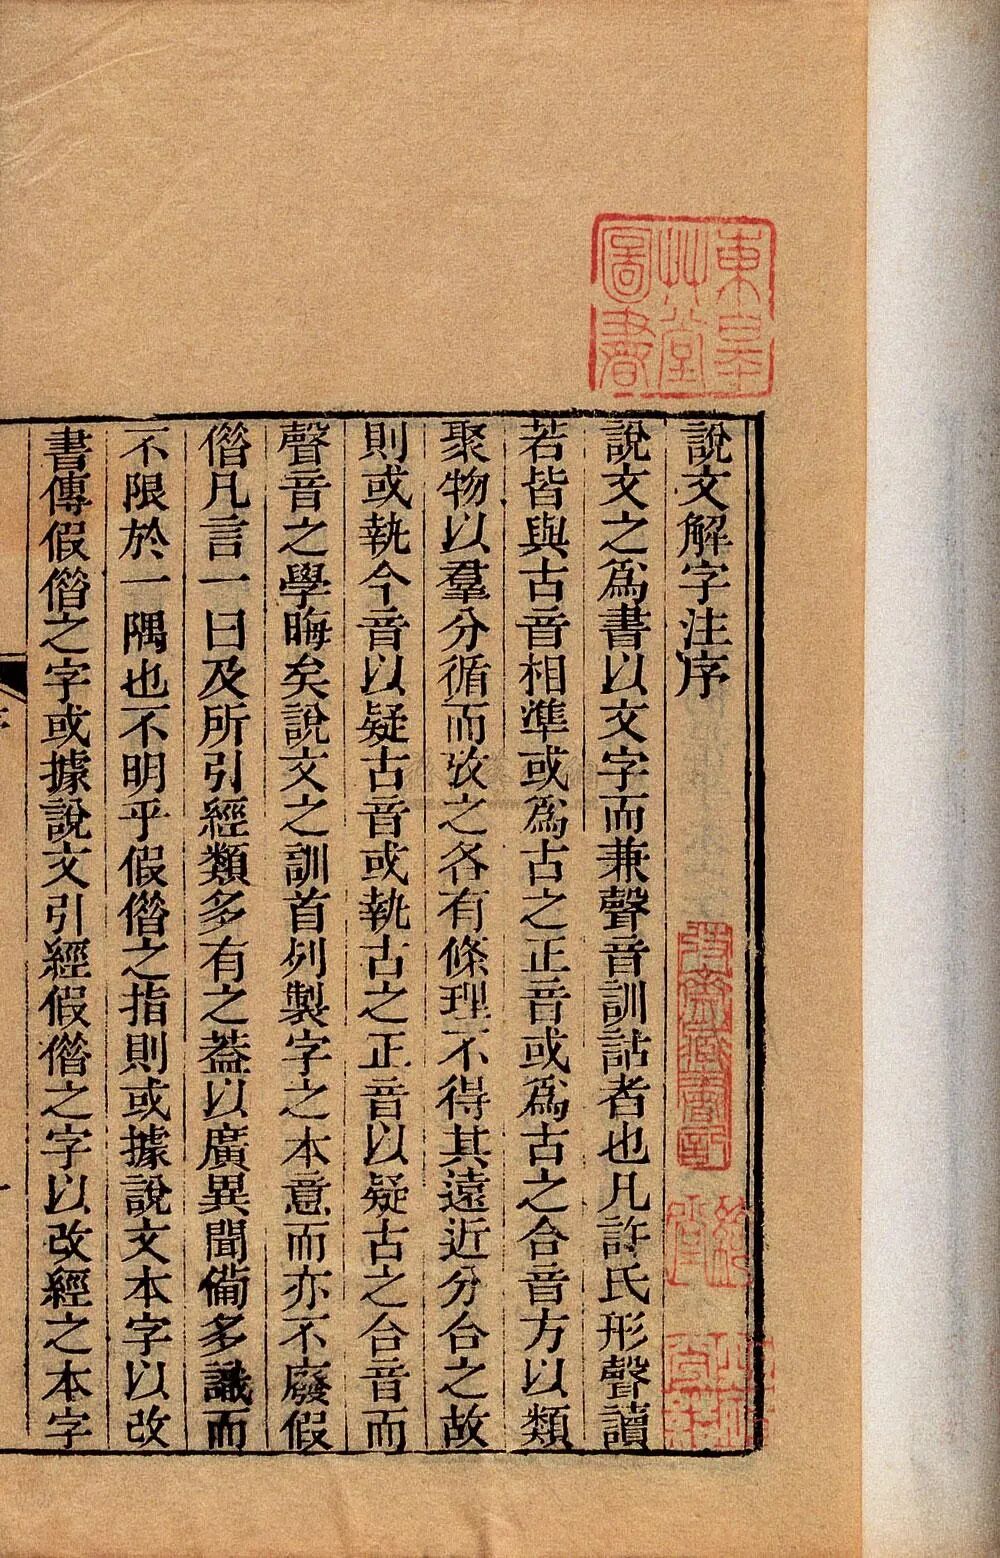 說文解字注序
說文之爲書以文字而兼聲音訓詁者也凡許氏形聲讀
若皆與古音相準或爲古之正音或爲古之合音方以類
聚物以羣分循而攷之各有條理不得其遠近分合之故
則或執今音以疑古音或執古之正音以疑古之合音而
聲音之學晦矣說文之訓首列製字之本意而亦不廢假
偺凡言一曰及所引經類多有之葢以廣異聞備多識而
不限於一隅也不明乎假偺之指則或據說文本字以改
書傳假偺之字或據說文引經假偺之字以改經之本字
序
一
東皋
艸堂
圖書